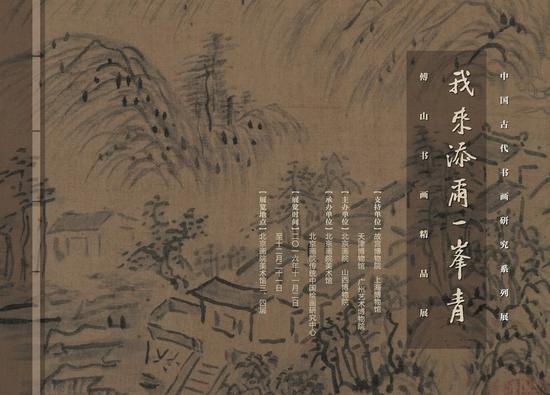 中国古代书画研究系列展
我來添爾一峯青
傅山书画精品展
【支持单位】故宫博物院 上海博物馆
天津博物馆 广州艺术博物院
【主办单位】北京画院 山西博物院
【承办单位】北京画院美术馆
北京画院传统中国绘画研究中心
【展览时间】二〇一六年十一月二日
【展览地点】北京画院美术馆三、四层